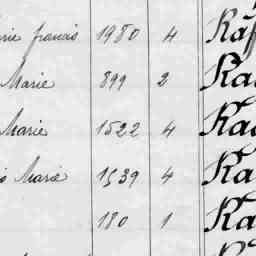 rie francis 1980 4 Raf
Marie 899 2 Ra
Marie 1522 4 Ra
s Marie 1539 4 Ra
180 1 Ra